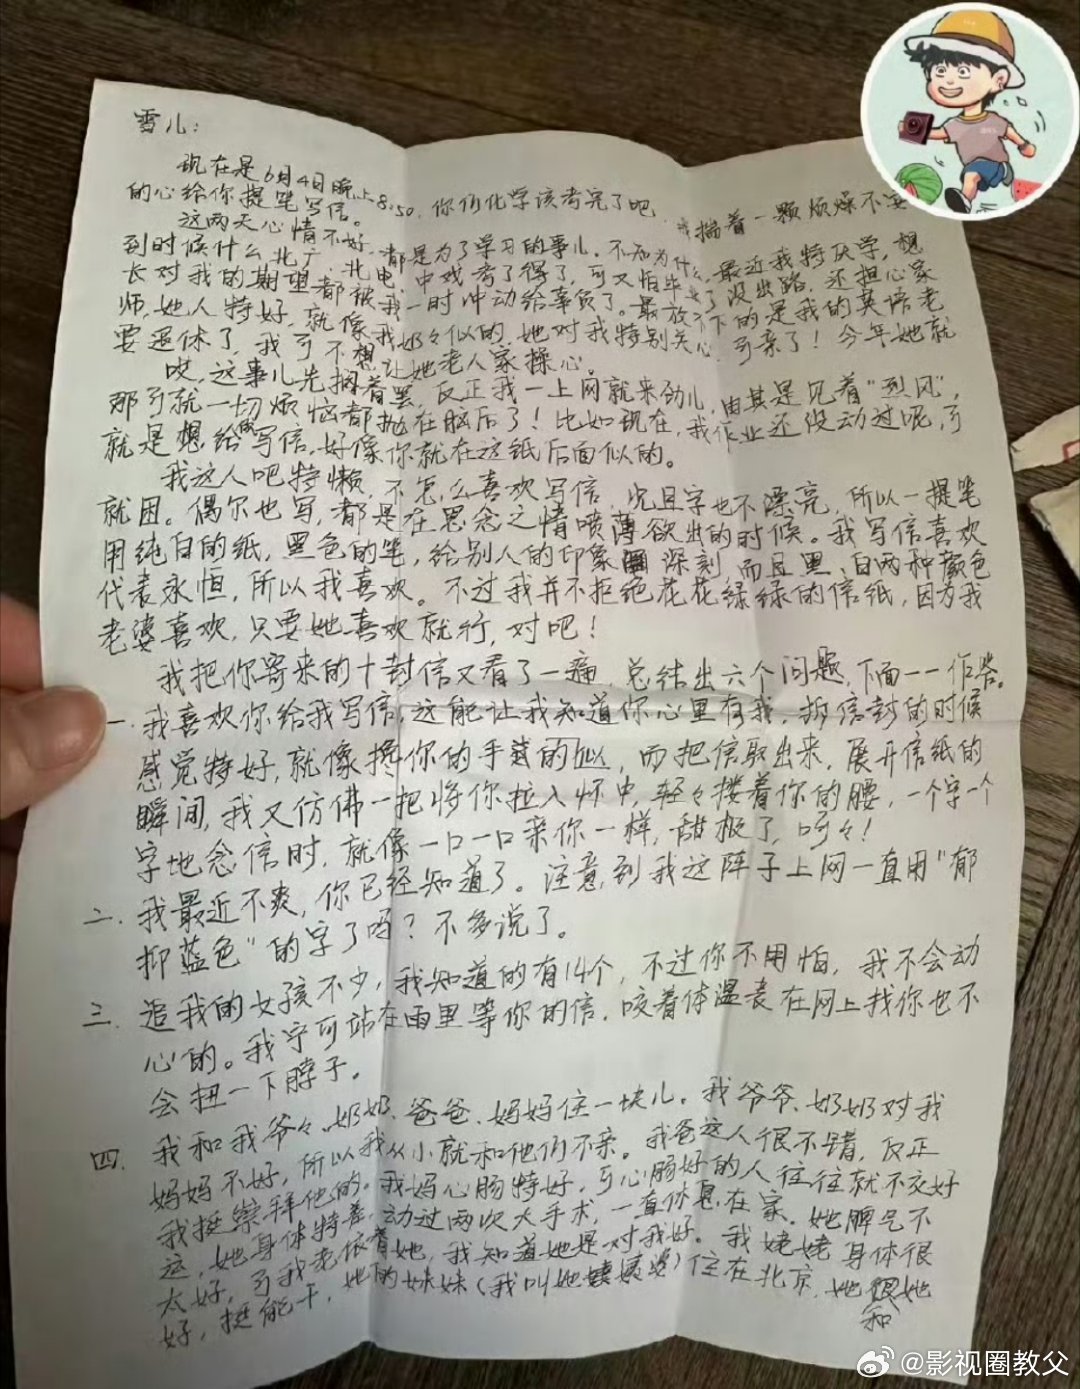 雪儿：
现在是6月4日晚上8:50，你们化学该考完了吧，我揣着一颗烦燥不安
的心给你提笔写信。
这两天心情不好，都是为了学习的事儿。不知为什么，最近我特厌学，想
到时候什么北广、北电、中戏考了得了，可又怕毕业了没出路，还担心家
长对我的期望都被我一时冲动给辜负了。最放不下的是我的英语老
师，她人特好，就像我奶々似的，她对我特别关心，可亲了！今年她就
要退休了，我可不想让她老人家操心。
哎，这事儿先搁着罢，反正我一上网就来劲儿，由其是见着“烈风”，
那可就一切烦恼都抛在脑后了！比如现在，我作业还没动过呢，可
就是想给你写信，好像你就在这纸后面似的。
我这人吧特懒，不怎么喜欢写信，况且字也不漂亮，所以一提笔
就困。偶尔也写，都是在思念之情喷薄欲出的时候。我写信喜欢
用纯白的纸，黑色的笔，给别人的印象深刻，而且黑、白两种颜色
代表永恒，所以我喜欢。不过我并不拒绝花花绿绿的信纸，因为我
老婆喜欢，只要她喜欢就行，对吧！
我把你寄来的十封信又看了一遍，总结出六个问题，下面一一作答。
一、我喜欢你给我写信，这能让我知道你心里有我，拆信封的时候
感觉特好，就像搀你的手的似，而把信取出来，展开信纸的
瞬间，我又仿佛一把将你拉入怀中，轻々搂着你的腰，一个字一个
字地念信时，就像一口一口亲你一样，甜极了，呵々！
二、我最近不爽，你已经知道了。注意到我这阵子上网一直用“郁
抑蓝色”的字了吗？不多说了。
三、追我的女孩不少，我知道的有14个，不过你不用怕，我不会动
心的。我宁可站在雨里等你的信，咬着体温表在网上找你也不
会扭一下脖子。
四、我和我爷々、奶奶、爸爸、妈妈住一块儿。我爷爷、奶奶对我
妈妈不好，所以我从小就和他们不亲。我爸这人很不错，反正
我挺崇拜他的。我妈心肠特好，可心肠好的人往往就不交好
运，她身体特差，动过两次大手术，一直休息在家。她脾气不
太好，可我老依着她，我知道她是对我好。我姥姥身体很
好，挺能干，她的妹妹（我叫她姨婆）住在北京，她和她
@影视圈教父